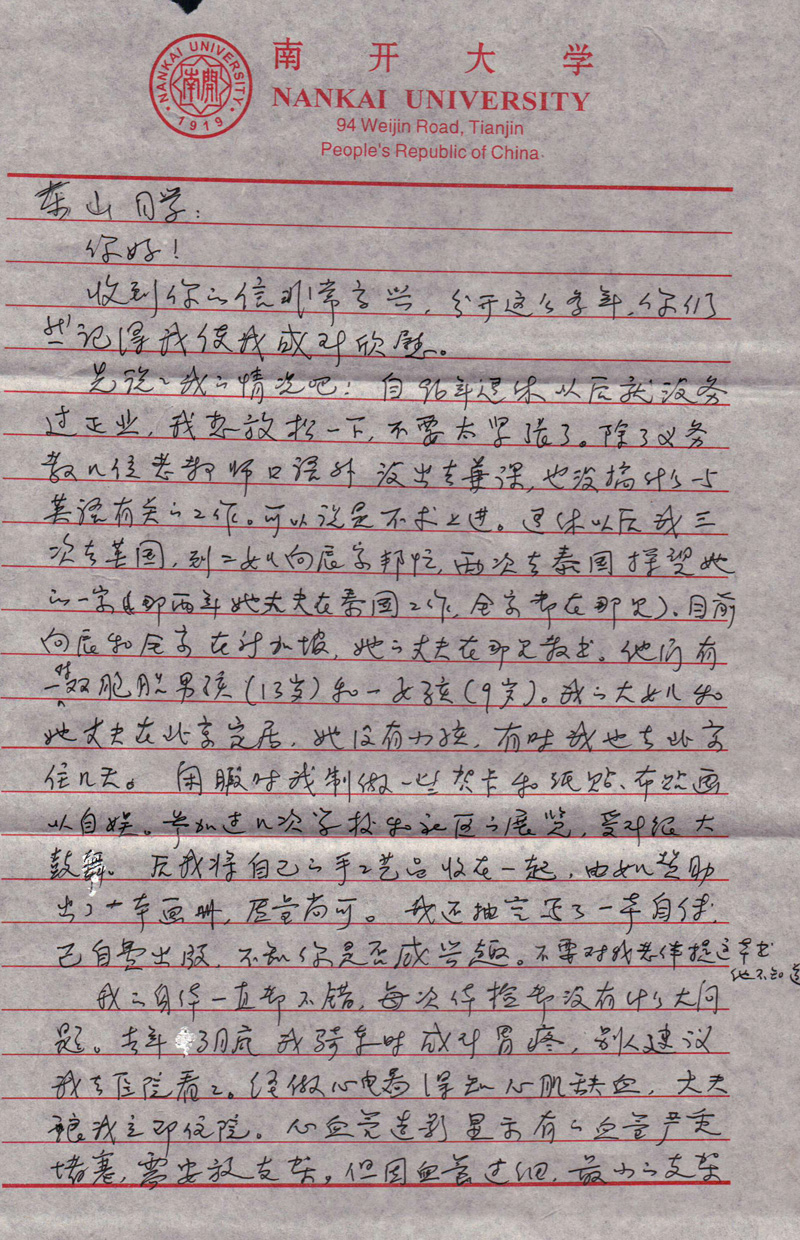 南开大学
NANKAI UNIVERSITY
1919
NANKAI UNIVERSITY
94 Weijin Road, Tianjin
People's Republic of China
东山同学：
你好！
收到你的信非常高兴，分开这么多年，你们
还记得我使我感到欣慰。
先说说我的情况吧！自96年退休以后就没务
过正业，我想放松一下，不要太紧张了。除了义务
教几位老教师口语外没出去兼课，也没搞什么与
英语有关的工作。可以说是不求上进。退休以后我三
次去英国，到二女儿向辰家帮忙，两次去泰国探望她
的一家（那两年她丈夫在泰国工作，全家都在那儿）。目前
向辰和全家在新加坡，她的丈夫在那儿教书。他们有
一对双胞胎男孩（13岁）和一女孩（9岁）。我的大女儿和
她丈夫在北京定居，她没有小孩，有时我也去北京
住几天。闲暇时我制做一些贺卡和纸贴、布贴画
以自娱。参加过几次学校和社区的展览，受到很大
鼓舞。后我将自己的手工艺品收在一起，由女儿赞助
出了一本画册，质量尚可。我还抽空写了一本自传，
已自费出版，不知你是否感兴趣。不要对我老伴提这本书
他不知道
我的身体一直都不错，每次体检都没有什么大问
题。去年3月底我骑车时感到胃疼，别人建议
我去医院看看。经做心电图得知心肌缺血，大夫
让我立即住院。心血管造影显示有的血管严重
堵塞，需安放支架。但因血管过细，最小的支架